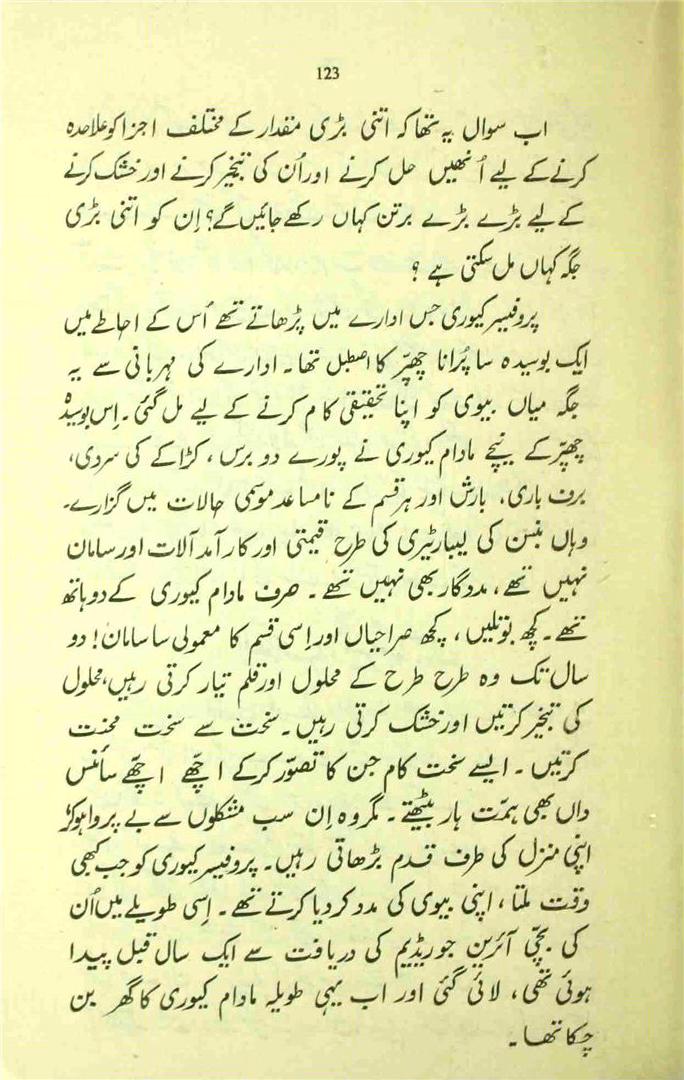 123
اب سوال یہ تھا کہ اتنی بڑی مقدار کے مختلف اجزا کو علاحدہ
کرنے کے لیے اُنھیں حل کرنے اور اُن کی تبخیر کرنے اور خشک کرنے
کے لیے بڑے بڑے برتن کہاں رکھے جائیں گے؟ اِن کو اتنی بڑی
جگہ کہاں مل سکتی ہے ؟
پروفیسر کیوری جس ادارے میں پڑھاتے تھے اُس کے احاطے میں
ایک بوسیدہ سا پُرانا چھپّر کا اصطبل تھا۔ ادارے کی مہربانی سے یہ
جگہ میاں بیوی کو اپنا تحقیقی کام کرنے کے لیے مل گئی۔ اِس بوسیدہ
چھپّر کے نیچے مادام کیوری نے پورے دو برس ، کڑاکے کی سردی،
برف باری، بارش اور ہر قسم کے نامساعد موسمی حالات میں گزارے۔
وہاں بنسن کی لیبارٹیری کی طرح قیمتی اور کارآمد آلات اور سامان
نہیں تھے، مددگار بھی نہیں تھے۔ صرف مادام کیوری کے دو ہاتھ
تھے۔ کچھ بوتلیں ، کچھ صراحیاں اور اِسی قسم کا معمولی سا سامان! دو
سال تک وہ طرح طرح کے محلول اور قلم تیار کرتی رہیں، محلول
کی تبخیر کرتیں اور خشک کرتی رہیں۔ سخت سے سخت محنت
کرتیں ۔ ایسے سخت کام جن کا تصوّر کرکے اچھّے اچھّے سائنس
داں بھی ہمّت ہار بیٹھتے۔ مگر وہ اِن سب مشکلوں سے بے پروا ہوکر
اپنی منزل کی طرف قدم بڑھاتی رہیں۔ پروفیسر کیوری کو جب کبھی
وقت ملتا ، اپنی بیوی کی مدد کر دیا کرتے تھے۔ اِسی طویلے میں اُن
کی بچّی آئرین جو ریڈیم کی دریافت سے ایک سال قبل پیدا
ہوئی تھی، لائی گئی اور اب یہی طویلہ مادام کیوری کا گھر بن
چکا تھا۔